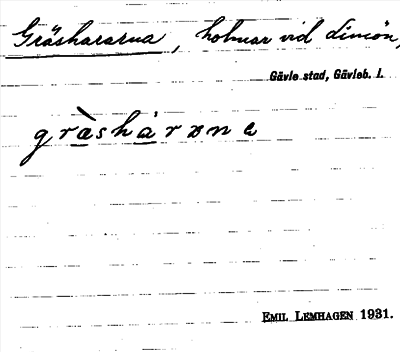 Gråshararna, holmar vid Limön,
Gävle stad, Gävleb. l.
EMIL LEMHAGEN 1931.